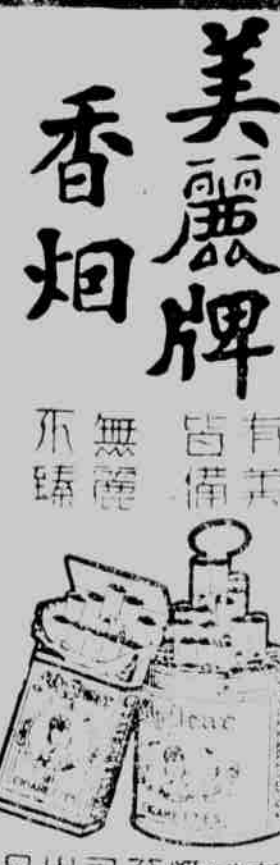 美麗牌
香烟
有美
皆備
無麗
不臻
My Dear
CIGARETTES
My Dear
CIGARETTES